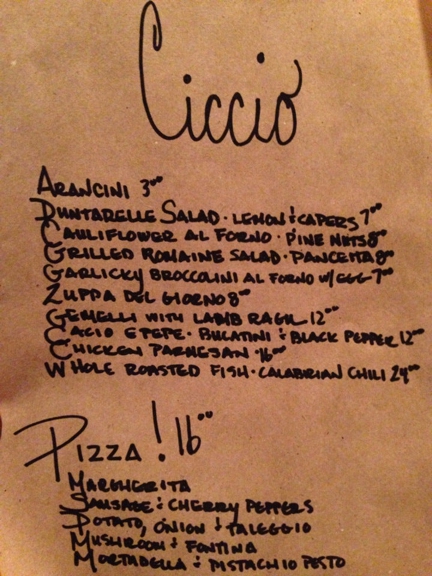 Ciccio
ARANCINI 3⁰⁰
PUNTARELLE SALAD · LEMON & CAPERS 7⁰⁰
CAULIFLOWER AL FORNO · PINE NUTS 8⁰⁰
GRILLED ROMAINE SALAD · PANCETTA 8⁰⁰
GARLICKY BROCCOLINI AL FORNO W/ EGG 7⁰⁰
ZUPPA DEL GIORNO 8⁰⁰
GEMELLI WITH LAMB RAGU 12⁰⁰
CACIO E PEPE · BUCATINI & BLACK PEPPER 12⁰⁰
CHICKEN PARMESAN · 16⁰⁰
WHOLE ROASTED FISH · CALABRIAN CHILI 24⁰⁰
PIZZA! 16⁰⁰
MARGHERITA
SAUSAGE & CHERRY PEPPERS
POTATO, ONION & TALEGGIO
MUSHROOM & FONTINA
MORTADELLA & PISTACHIO PESTO